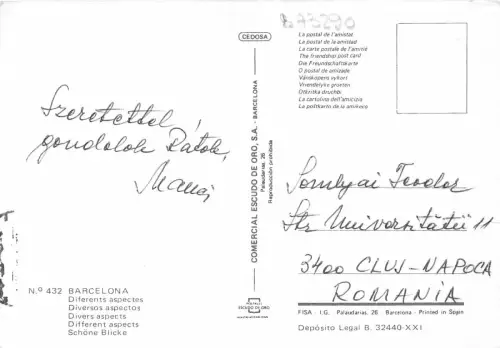 CEDOSA
B 73290
La postal de l'amistat
La postal de la amistad
La carte postale de l'amitié
The friendship post card
Die Freundschaftskarte
O postal de amizade
Vänskapens vykort
Vriendelyke groeten
Otkritka druzhba
La cartolina dell'amicizia
La poŝtkarto de la amikeco
Szeretettel
gondolok Rátok,
COMERCIAL ESCUDO DE ORO, S.A. - BARCELONA
Palaudarias, 26
Reproducción prohibida
Somlyai Teodor
Str Universitătii 11
3400 CLUJ-NAPOCA
ROMANIA
N.º 432 BARCELONA
Diferents aspectes
Diversos aspectos
Divers aspects
Different aspects
Schöne Blicke
ESCUDO DE ORO
FISA - I.G. Palaudarias, 26 Barcelona - Printed in Spain
Depósito Legal B. 32440-XXI